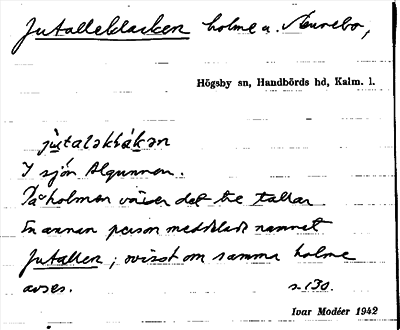 Jutalleklacken holme a. Aurebo,
Högsby sn, Handbörds hd, Kalm. l.
jùtaləklákən
I sjön Algunnen.
På holmen växer det tre tallar
En annan person meddelade namnet
Jutallen; ovisst om samma holme
avses. s. 130.
Ivar Modéer 1942